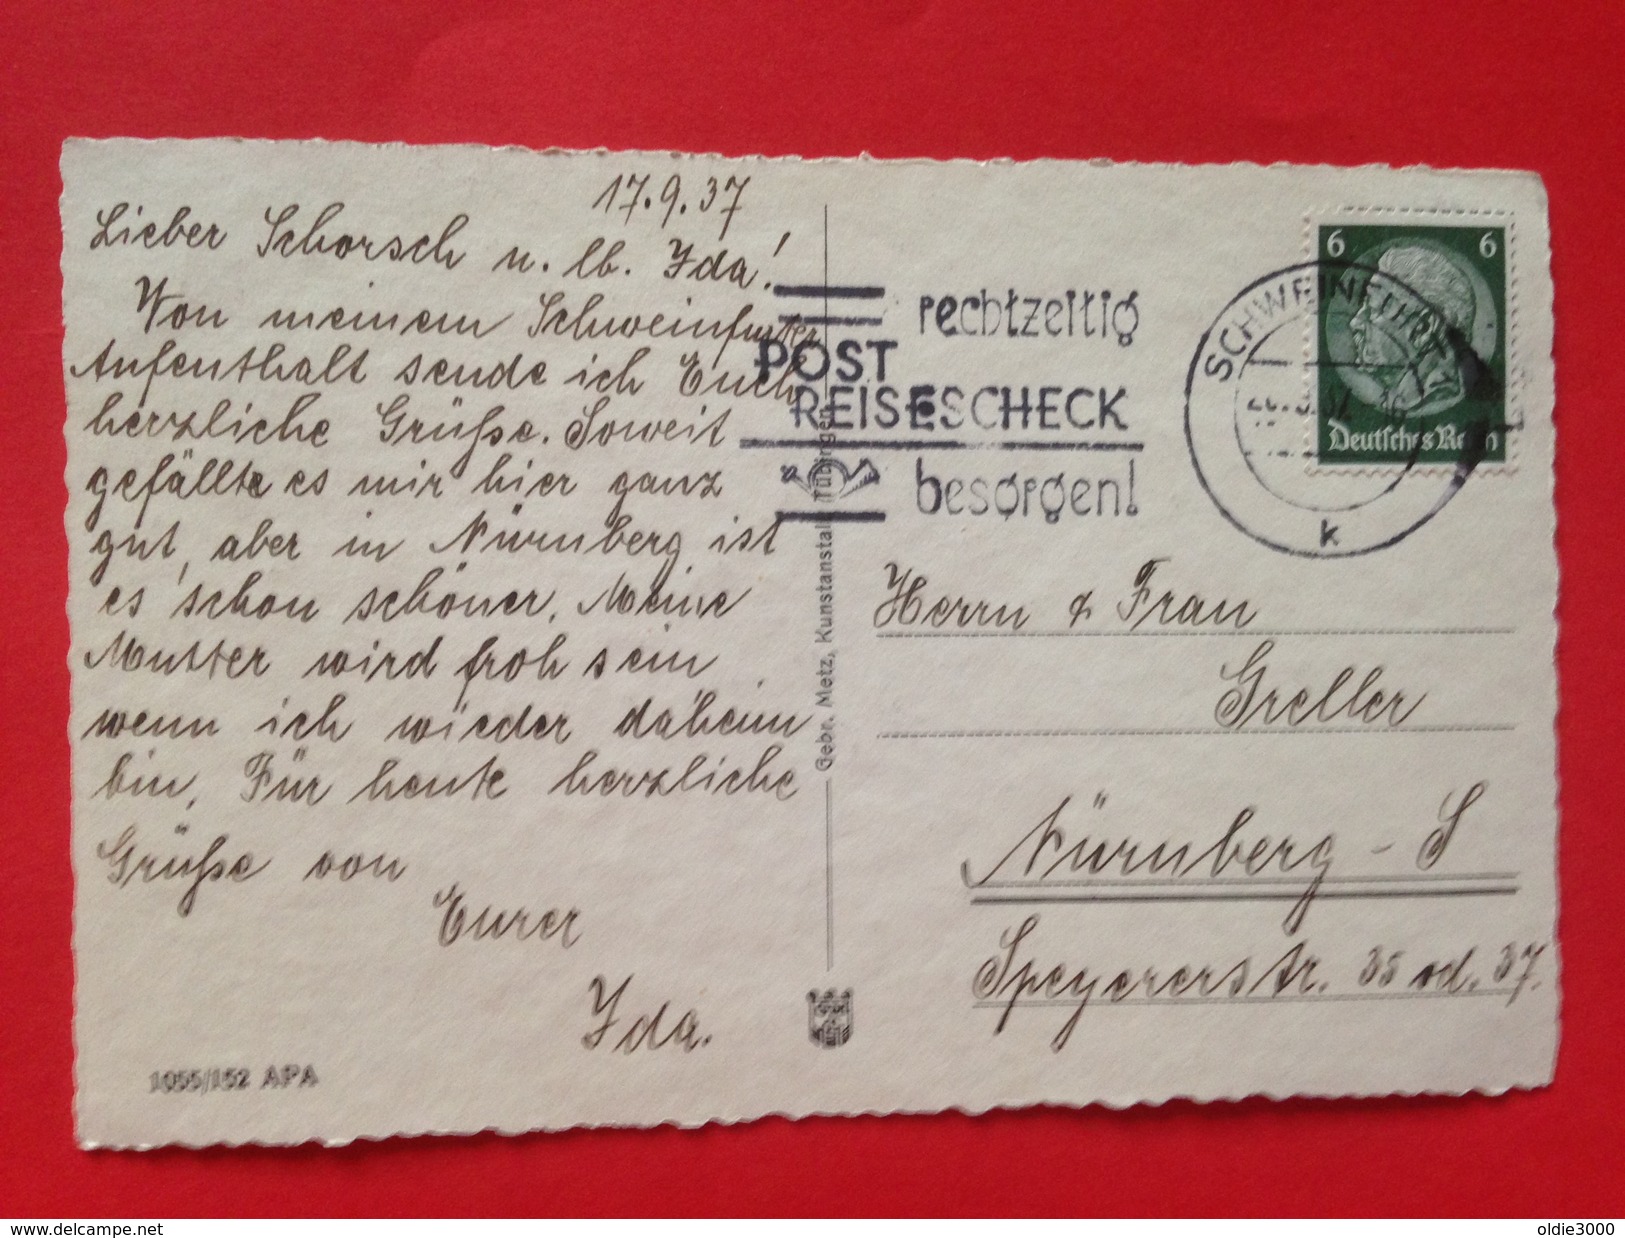 17.9.37
Lieber Schorsch u. lb. Ida!
Von meinem Schweinfurter
Aufenthalt sende ich Euch
herzliche Grüße. Soweit
gefällte es mir hier ganz
gut, aber in Nürnberg ist
es schon schöner. Meine
Mutter wird froh sein
wenn ich wieder daheim
bin. Für heute herzliche
Grüße von
Eurer
Ida.
1055/152 APA
Gebr. Metz, Kunstanstalt, Tübingen
rechtzeitig
POST
REISESCHECK
besorgen!
SCHWEINFURT
k
6 6
Deutsches Reich
Herrn & Frau
Greller
Nürnberg - S
Speyererstr. 35 od. 37.
delcampe.net
oldie3000